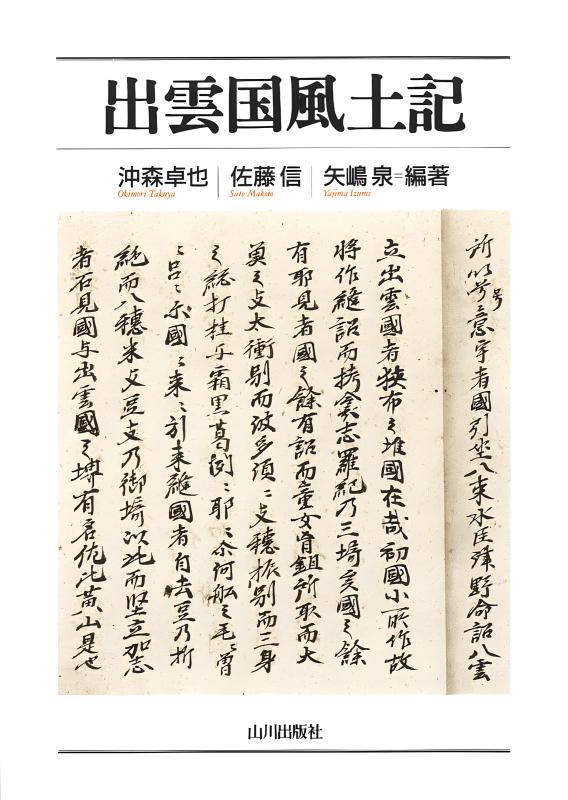 出雲国風土記
沖森卓也 佐藤 信 矢嶋 泉=編著
Okimori Takuya Sato Makoto Yajima Izumi
所以号意宇者國引坐八束水臣津野命詔八雲
号
立出雲國者狭布之堆國在哉初國小所作故
将作縫詔而栲衾志羅紀乃三埼矣國之餘
有耶見者國之餘有詔而童女胷鉏所取而大
魚之支太衝別而波多須〻支穂振別而三身
之綂打挂与霜黒葛〻耶〻尒河舩之毛〻曽
〻呂〻尒國〻来〻引来縫國者自去豆乃折
絶而八穂米支豆支乃御埼以此而堅立加志
者石見國与出雲國之堺有名佐比黄山是也
山川出版社